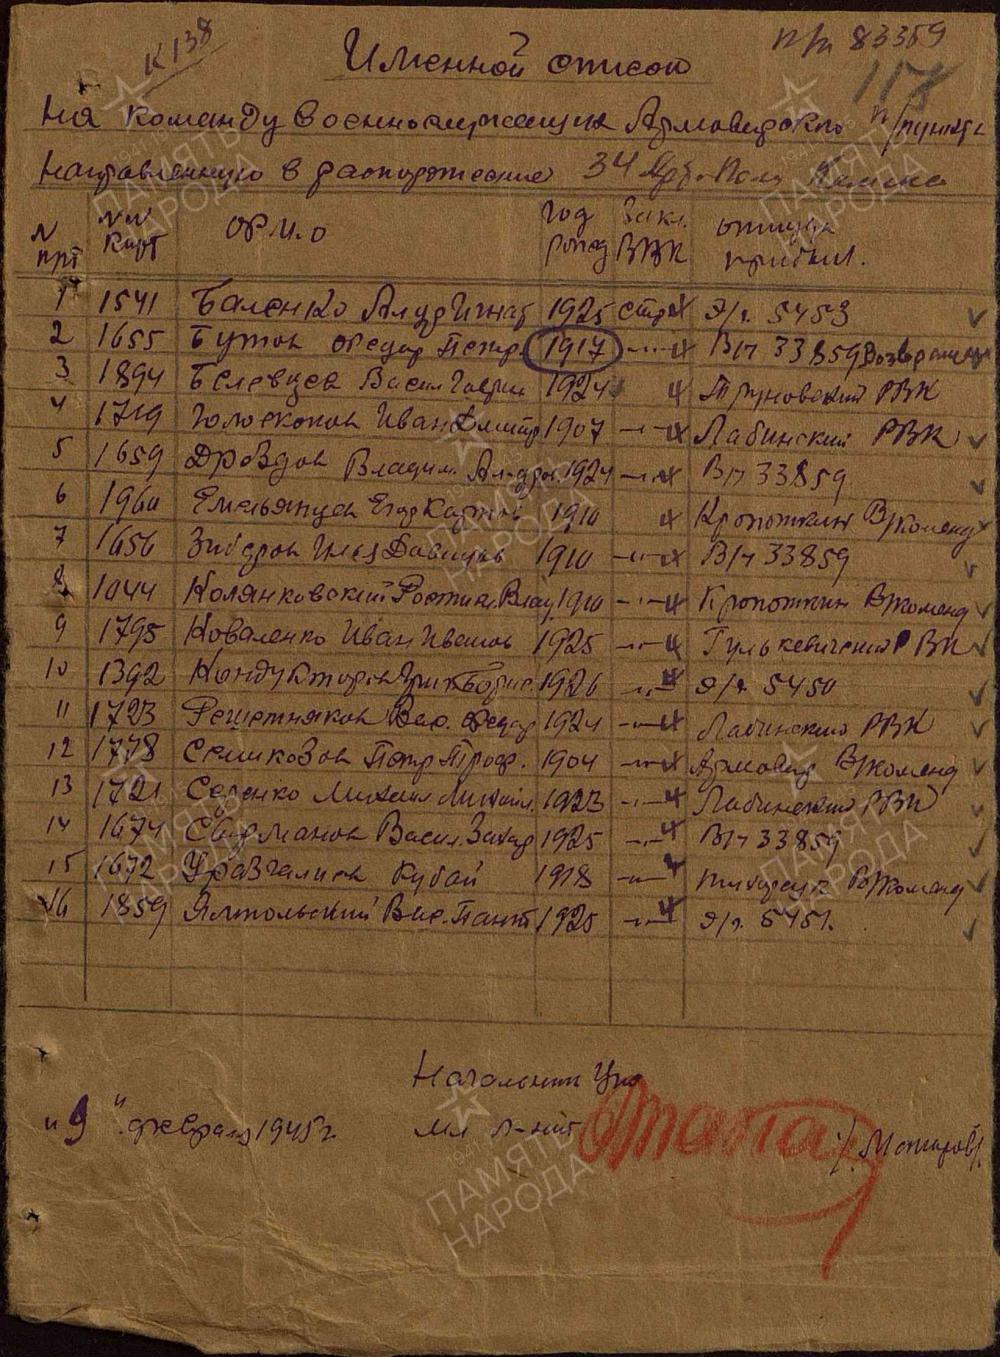 К138
п/п 83359
117
Именной список
На команду военнослужащих Армавирского п/пункта
Направленную в распоряжение 34
N прт
NN карт
Ф.И.О
год рожд
Закл. ВВК
откуда прибыл.
1 1541 Баленко 1925 стр я/ч. 5453
2 1655 Бутов Федор Петр. 1917 —"— В/ч 33859 Возвращен
3 1894 Белевцев Васил Гаврил 1924 Труновский РВК
4 1719 Голоскоков Иван Дмитр 1907 —"— Лабинский РВК
5 1659 Дроздов Владим. Ал-др. 1924 —"— В/ч 33859
6 1960 Емельянцев Егор 1910 Кропоткин В/коменд
7 1656 Илья Давидов 1910 —"— В/ч 33859
8 1044 Колянковский Ростисл. Влад 1910 —"— Кропоткин В/коменд
9 1795 Коваленко Иван Иванов 1925 —"— Гулькевический РВК
10 1392 Кондукторов Борис. 1926 —"— я/ч. 5450
11 1723 Решетняков Вас. Федор 1924 —"— Лабинский РВК
12 1778 Семикозов Петр Троф. 1904 —"— Армавир В/коменд
13 1721 Серенко Михаил Михайл. 1923 —"— Лабинский РВК
14 1674 Васил. Захар 1925 —"— В/ч 33859
15 1672 Уразгалиев Кубай 1918 —"— тихорецк В/коменд
16 1859 Ямпольский Вас. Пант 1925 —"— я/ч. 5451.
Начальник
"9" февраля 1945 г. мл л-нт
ПАМЯТЬ НАРОДА
1941-1945